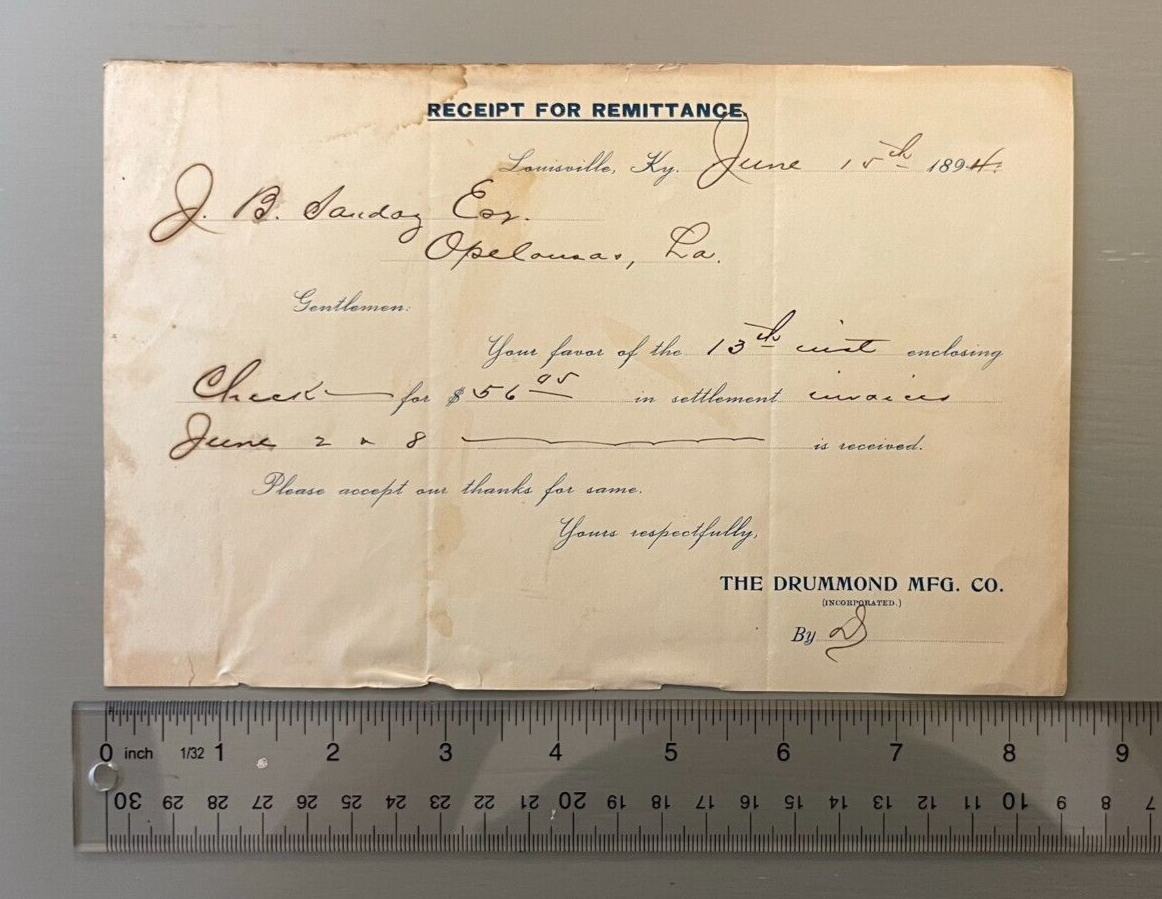 RECEIPT FOR REMITTANCE.
Louisville, Ky. June 15th 1894.
J. B. Sandoz Esq.
Opelousas, La.
Gentlemen:
Your favor of the 13th inst enclosing
Check for $56 05 in settlement invoices
June 2 & 8 is received.
Please accept our thanks for same.
Yours respectfully,
THE DRUMMOND MFG. CO.
(INCORPORATED.)
By
0 inch 1/32 1 2 3 4 5 6 7 8 9
30 29 28 27 26 25 24 23 22 21 20 19 18 17 16 15 14 13 12 11 10 9 8 7